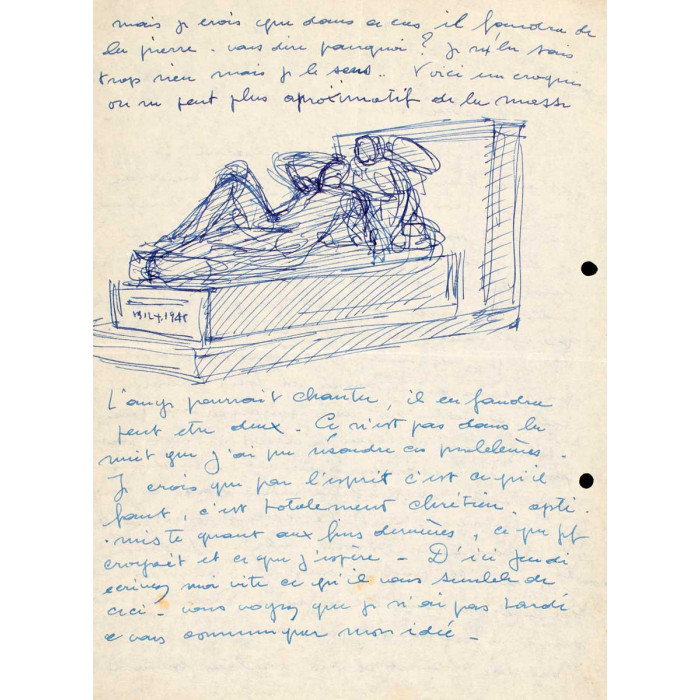 mais je crois que dans ce cas il faudra de
la pierre. vous dire pourquoi? je n'en sais
trop rien mais je le sens.. Voici un croquis
on ne peut plus aproximatif de la masse
1912 1945
L'ange pourrait chanter, il en faudra
peut etre deux - Ce n'est pas dans la
nuit que j'ai pu résoudre ces problèmes -
Je crois que par l'esprit c'est ce qu'il
faut, c'est totalement chrétien, opti-
-miste quant aux fins dernières, ce que
croyait et ce que j'espère - D'ici jeudi
ecrivez moi vite ce qu'il vous semble de
ceci - vous voyez que je n'ai pas tardé
a vous communiquer mon idée -